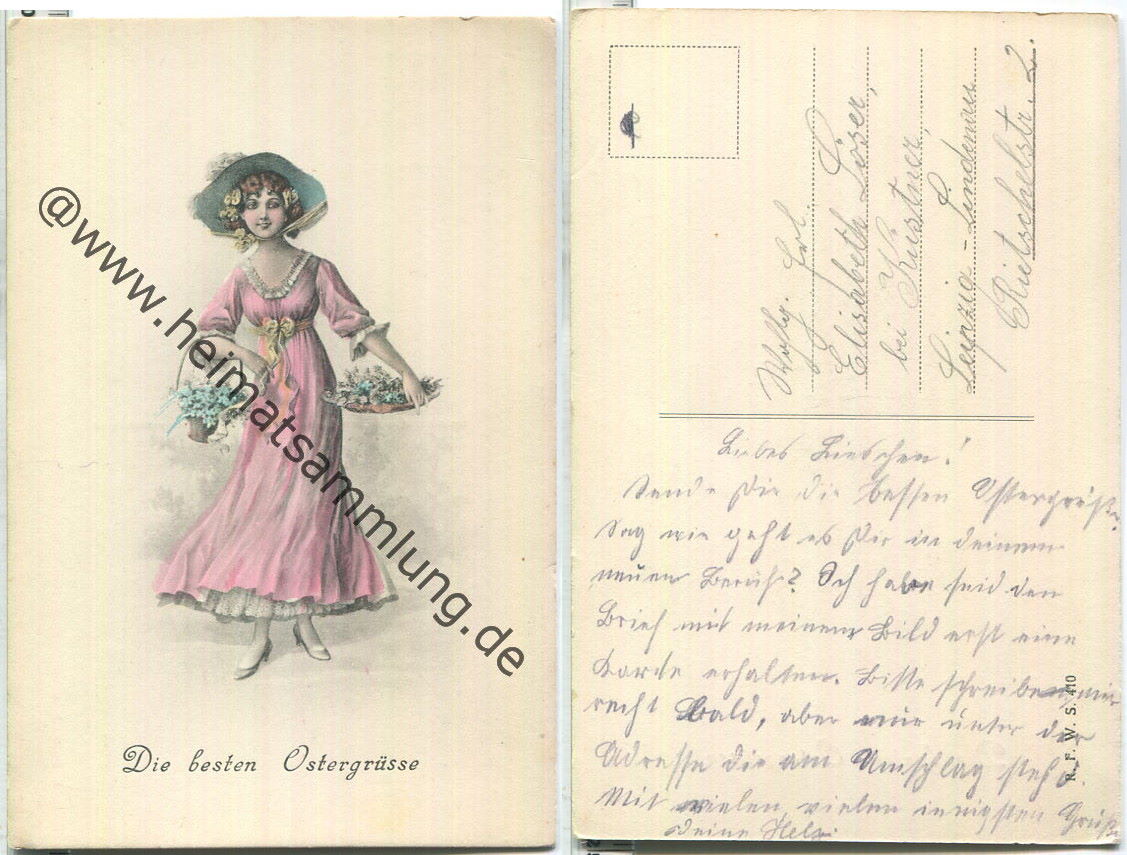 @www.heimatsammlung.de
Die besten Ostergrüsse
Wohlg. Frl.
Elisabeth Löser,
bei Küstner,
Leipzig-Lindenau
Rietschelstr. 2.
Liebes Lieschen!
Sende Dir die besten Ostergrüße.
Sag wie geht es Dir in deinem
neuen Beruf? Ich habe seid den
Brief mit meinem Bild erst eine
Karte erhalten. Bitte schreibe mir
recht Bald, aber nur unter der
Adresse die am Umschlag steht.
Mit vielen vielen innigsten Grüße
deine
R. F. W. S. 410